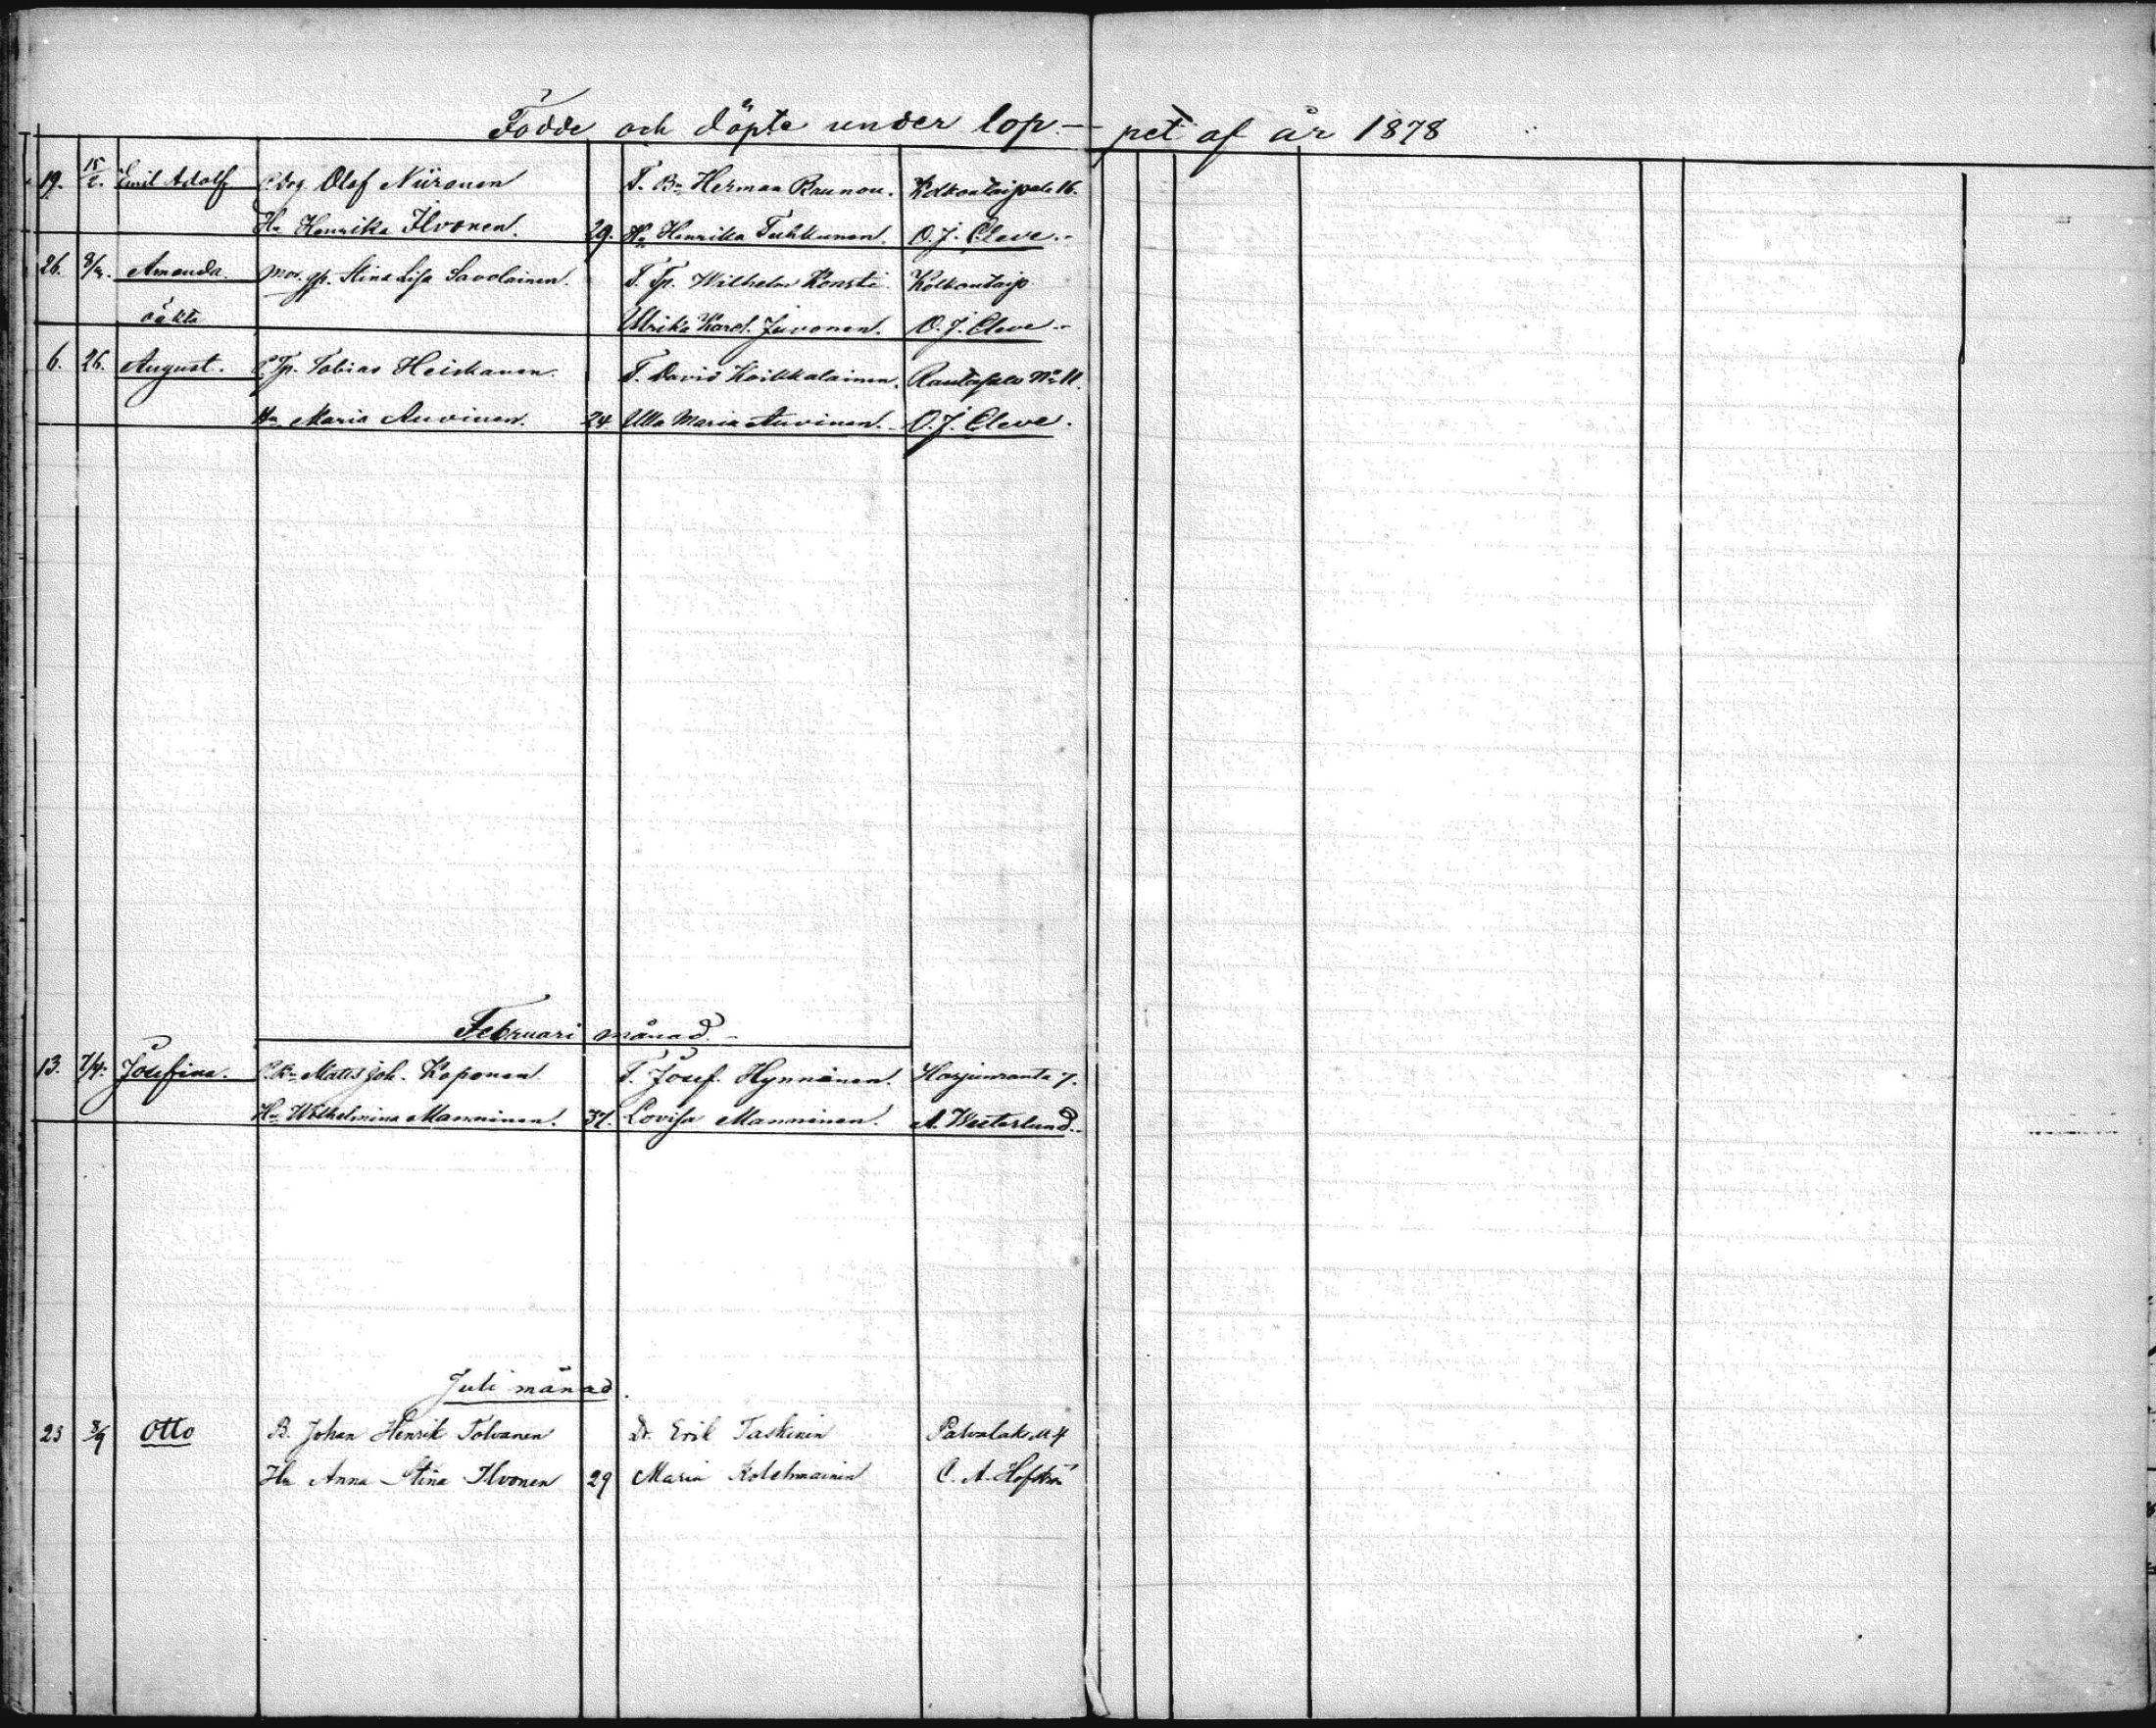 Födde och döpte under lop- pet af år 1878
19. 15/2. Emil Adolf Olof Niironen T. Bn Herman Raunou. Kolkontaipale 16.
Hu Henrika Ilvonen. 29. Hu Henrika Tuhkunen. O. J. Cleve.
26. Amanda. Mor. Stina Lisa Savolainen. T. Tp. Wilhelm Konsti Kolkontaip
oäkta Ulrika Karol. Juvonen. O. J. Cleve.
6. 26. August. Tp. Tobias Heiskanen. T. David Koikkalainen. Rantasalo No 11.
Hu Maria Auvinen. 24 Ulla Maria Auvinen. O. J. Cleve.
Februari månad.
13. 7/4. Josefina. Matts Joh. Koponen T. Josef Hynninen. Harjunranta 7.
Hu Wilhelmina Manninen. 37. Lovisa Manninen. A. Westerlund.
Juli månad.
23 8/9 Otto B. Johan Henrik Tolvanen Dr. Erik Taskinen Patvalaks 4
Hu Anna Stina Ilvonen 29 Maria Kolehmainen C. A. Hofström